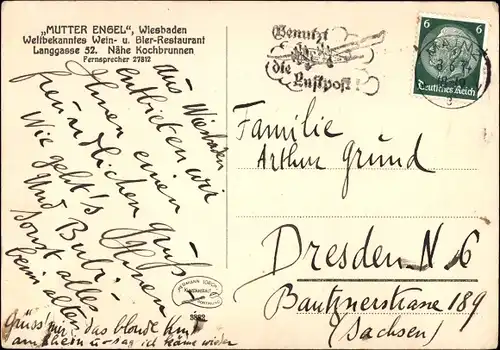 „MUTTER ENGEL“, Wiesbaden
Weltbekanntes Wein- u. Bier-Restaurant
Langgasse 52. Nähe Kochbrunnen
Fernsprecher 27812
Aus Wiesbaden
entbieten wir
Ihnen einen
freundlichen Gruß
Wie geht's Ihnen
und Bubi -
sonst alles
beim alten
Grüss' mir das blonde Kind
am Rhein u. sag ich käme wieder
3882
Benutzt
die
Luftpost!
6 6
Deutsches Reich
Familie
Arthur Grund
Dresden N 6
Bautznerstrasse 189
(Sachsen)